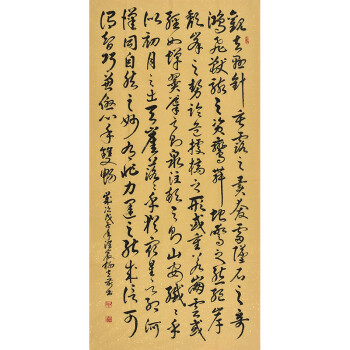 觀夫懸針垂露之異奔雷墜石之奇
鴻飛獸駭之資鸞舞蛇驚之態絕岸
頹峯之勢臨危據槁之形或重若崩雲或
輕如蟬翼導之則泉注頓之則山安纖纖乎
似初月之出天崖落落乎猶眾星之列河
漢同自然之妙有非力運之能成信可
謂智巧兼優心手雙暢 歲次戊子年